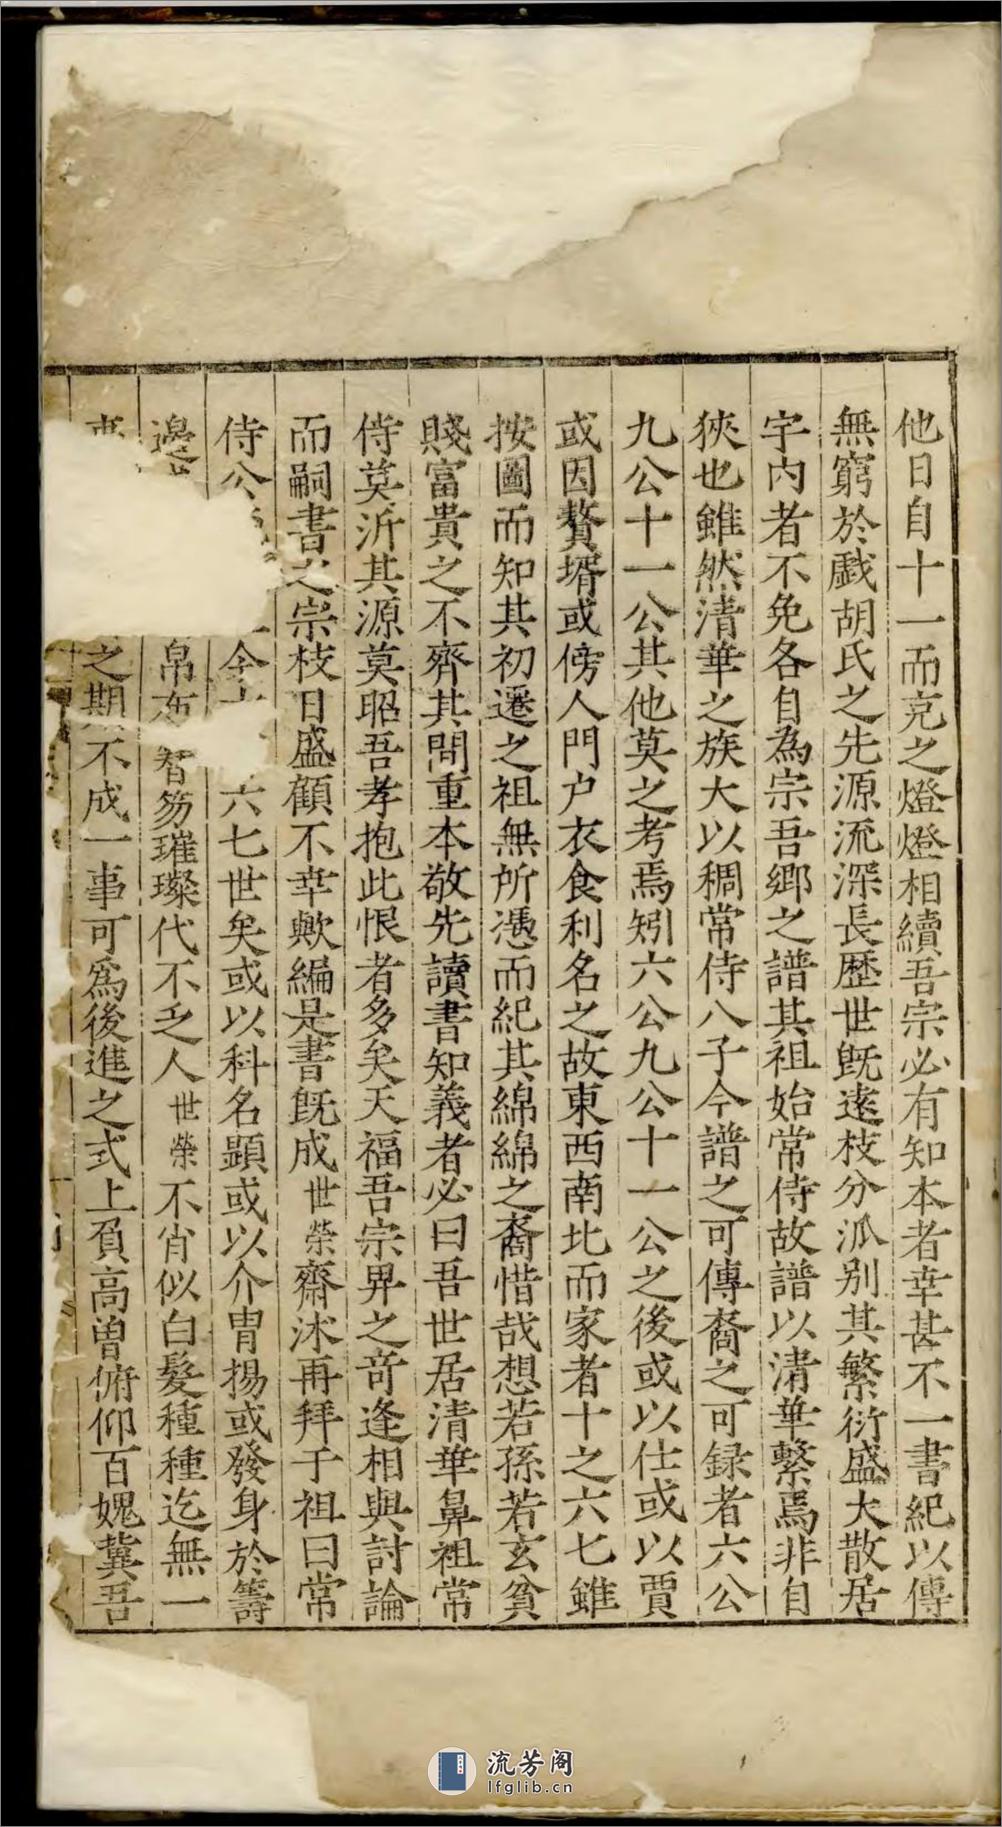 他日自十一而克之燈燈相續吾宗必有知本者幸甚不一書紀以傳
無窮於戯胡氏之先源流深長歷世旣遠枝分派别其繁衍盛大散居
宇內者不免各自為宗吾鄉之譜其祖始常侍故譜以清華繫焉非自
狹也雖然清華之族大以稠常侍八子今譜之可傳裔之可録者六公
九公十一公其他莫之考焉矧六公九公十一公之後或以仕或以賈
或因贅壻或傍人門户衣食利名之故東西南北而家者十之六七雖
按圖而知其初遷之祖無所憑而紀其綿綿之裔惜哉想若孫若玄貧
賤富貴之不齊其間重本敬先讀書知義者必曰吾世居清華鼻祖常
侍莫沂其源莫昭吾孝抱此恨者多矣天福吾宗畀之竒逢相與討論
而嗣書之宗枝日盛顧不幸歟編是書旣成世榮齋沐再拜于祖曰常
侍公 今 六七世矣或以科名顕或以介胄揚或發身於籌
邊 帛 笏璀璨代不乏人世榮不肖似白髮種種迄無一
之期不成一事可爲後進之式上負高曽俯仰百媿冀吾
流芳阁
lfglib.cn